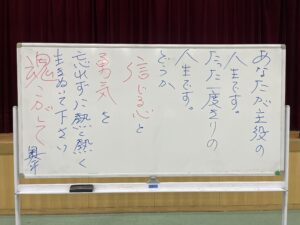 あなたが主役の
人生です。
たった一度きりの
人生です。
どうか
信じる心と
勇気を
忘れずに熱く熱く
生きぬいて下さい
魂こがして